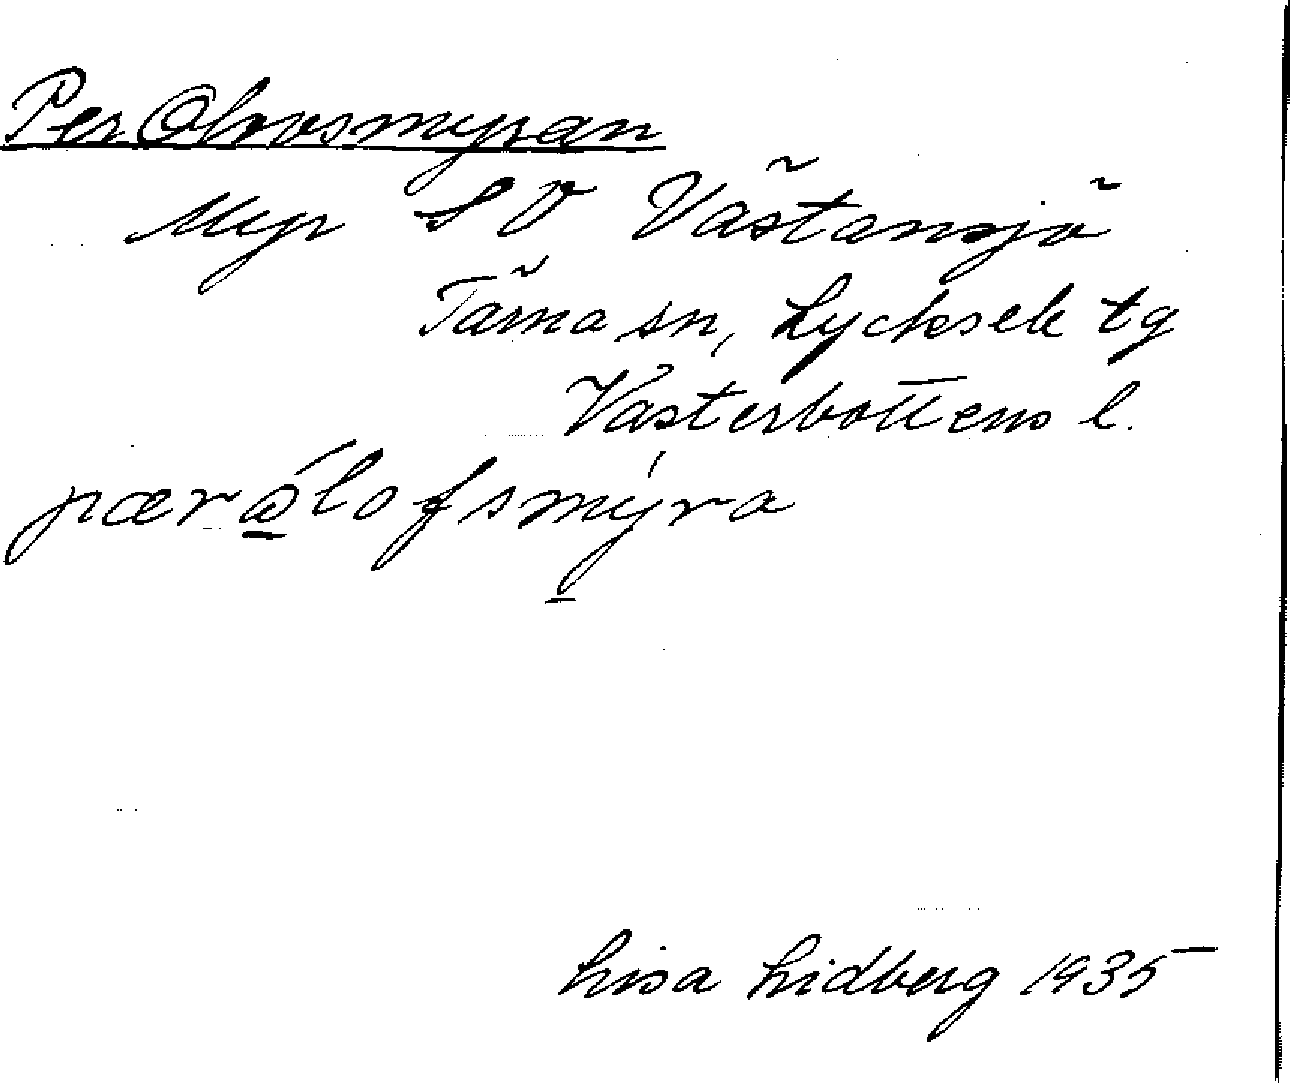 Per Olovsmyran
Myr SV Västansjö
Tärna sn, Lycksele tg
Västerbottens l.
pærålofsmýra
Lisa Lidberg 1935